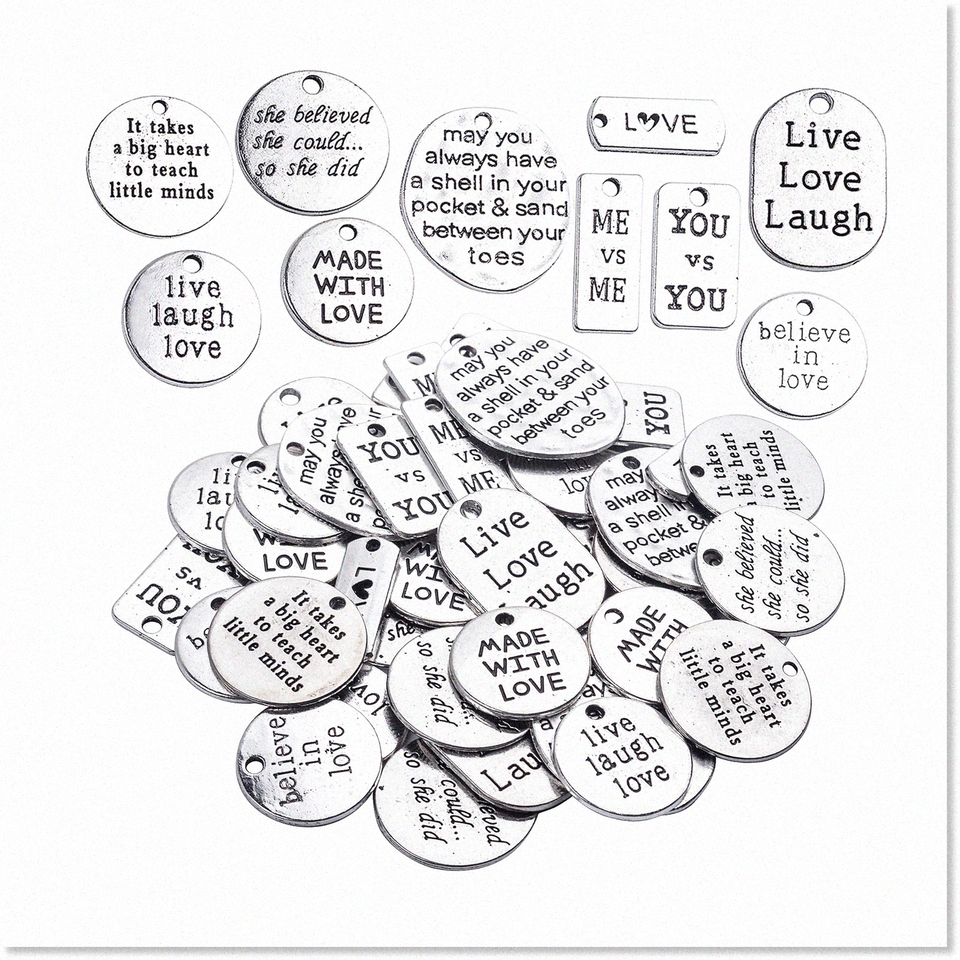 It takes
a big heart
to teach
little minds
she believed
she could...
so she did
may you
always have
a shell in your
pocket & sand
between your
toes
L VE
Live
Love
Laugh
ME
vs
ME
YOU
vs
YOU
live
laugh
love
MADE
WITH
LOVE
believe
in
love
may you
always have
a shell in your
pocket & sand
between your
toes
YOU
YOU
vs
YOU
ME
vs
ME
may you
It takes
a big heart
to teach
little minds
Live
Love
Laugh
may
pocket &
she believed
she could...
so she did
LOVE
vs
YOU
It takes
a big heart
to teach
little minds
MADE
WITH
LOVE
MADE
WITH
It takes
a big heart
to teach
little minds
so she did
believe
in
love
live
laugh
love
could...
so she did